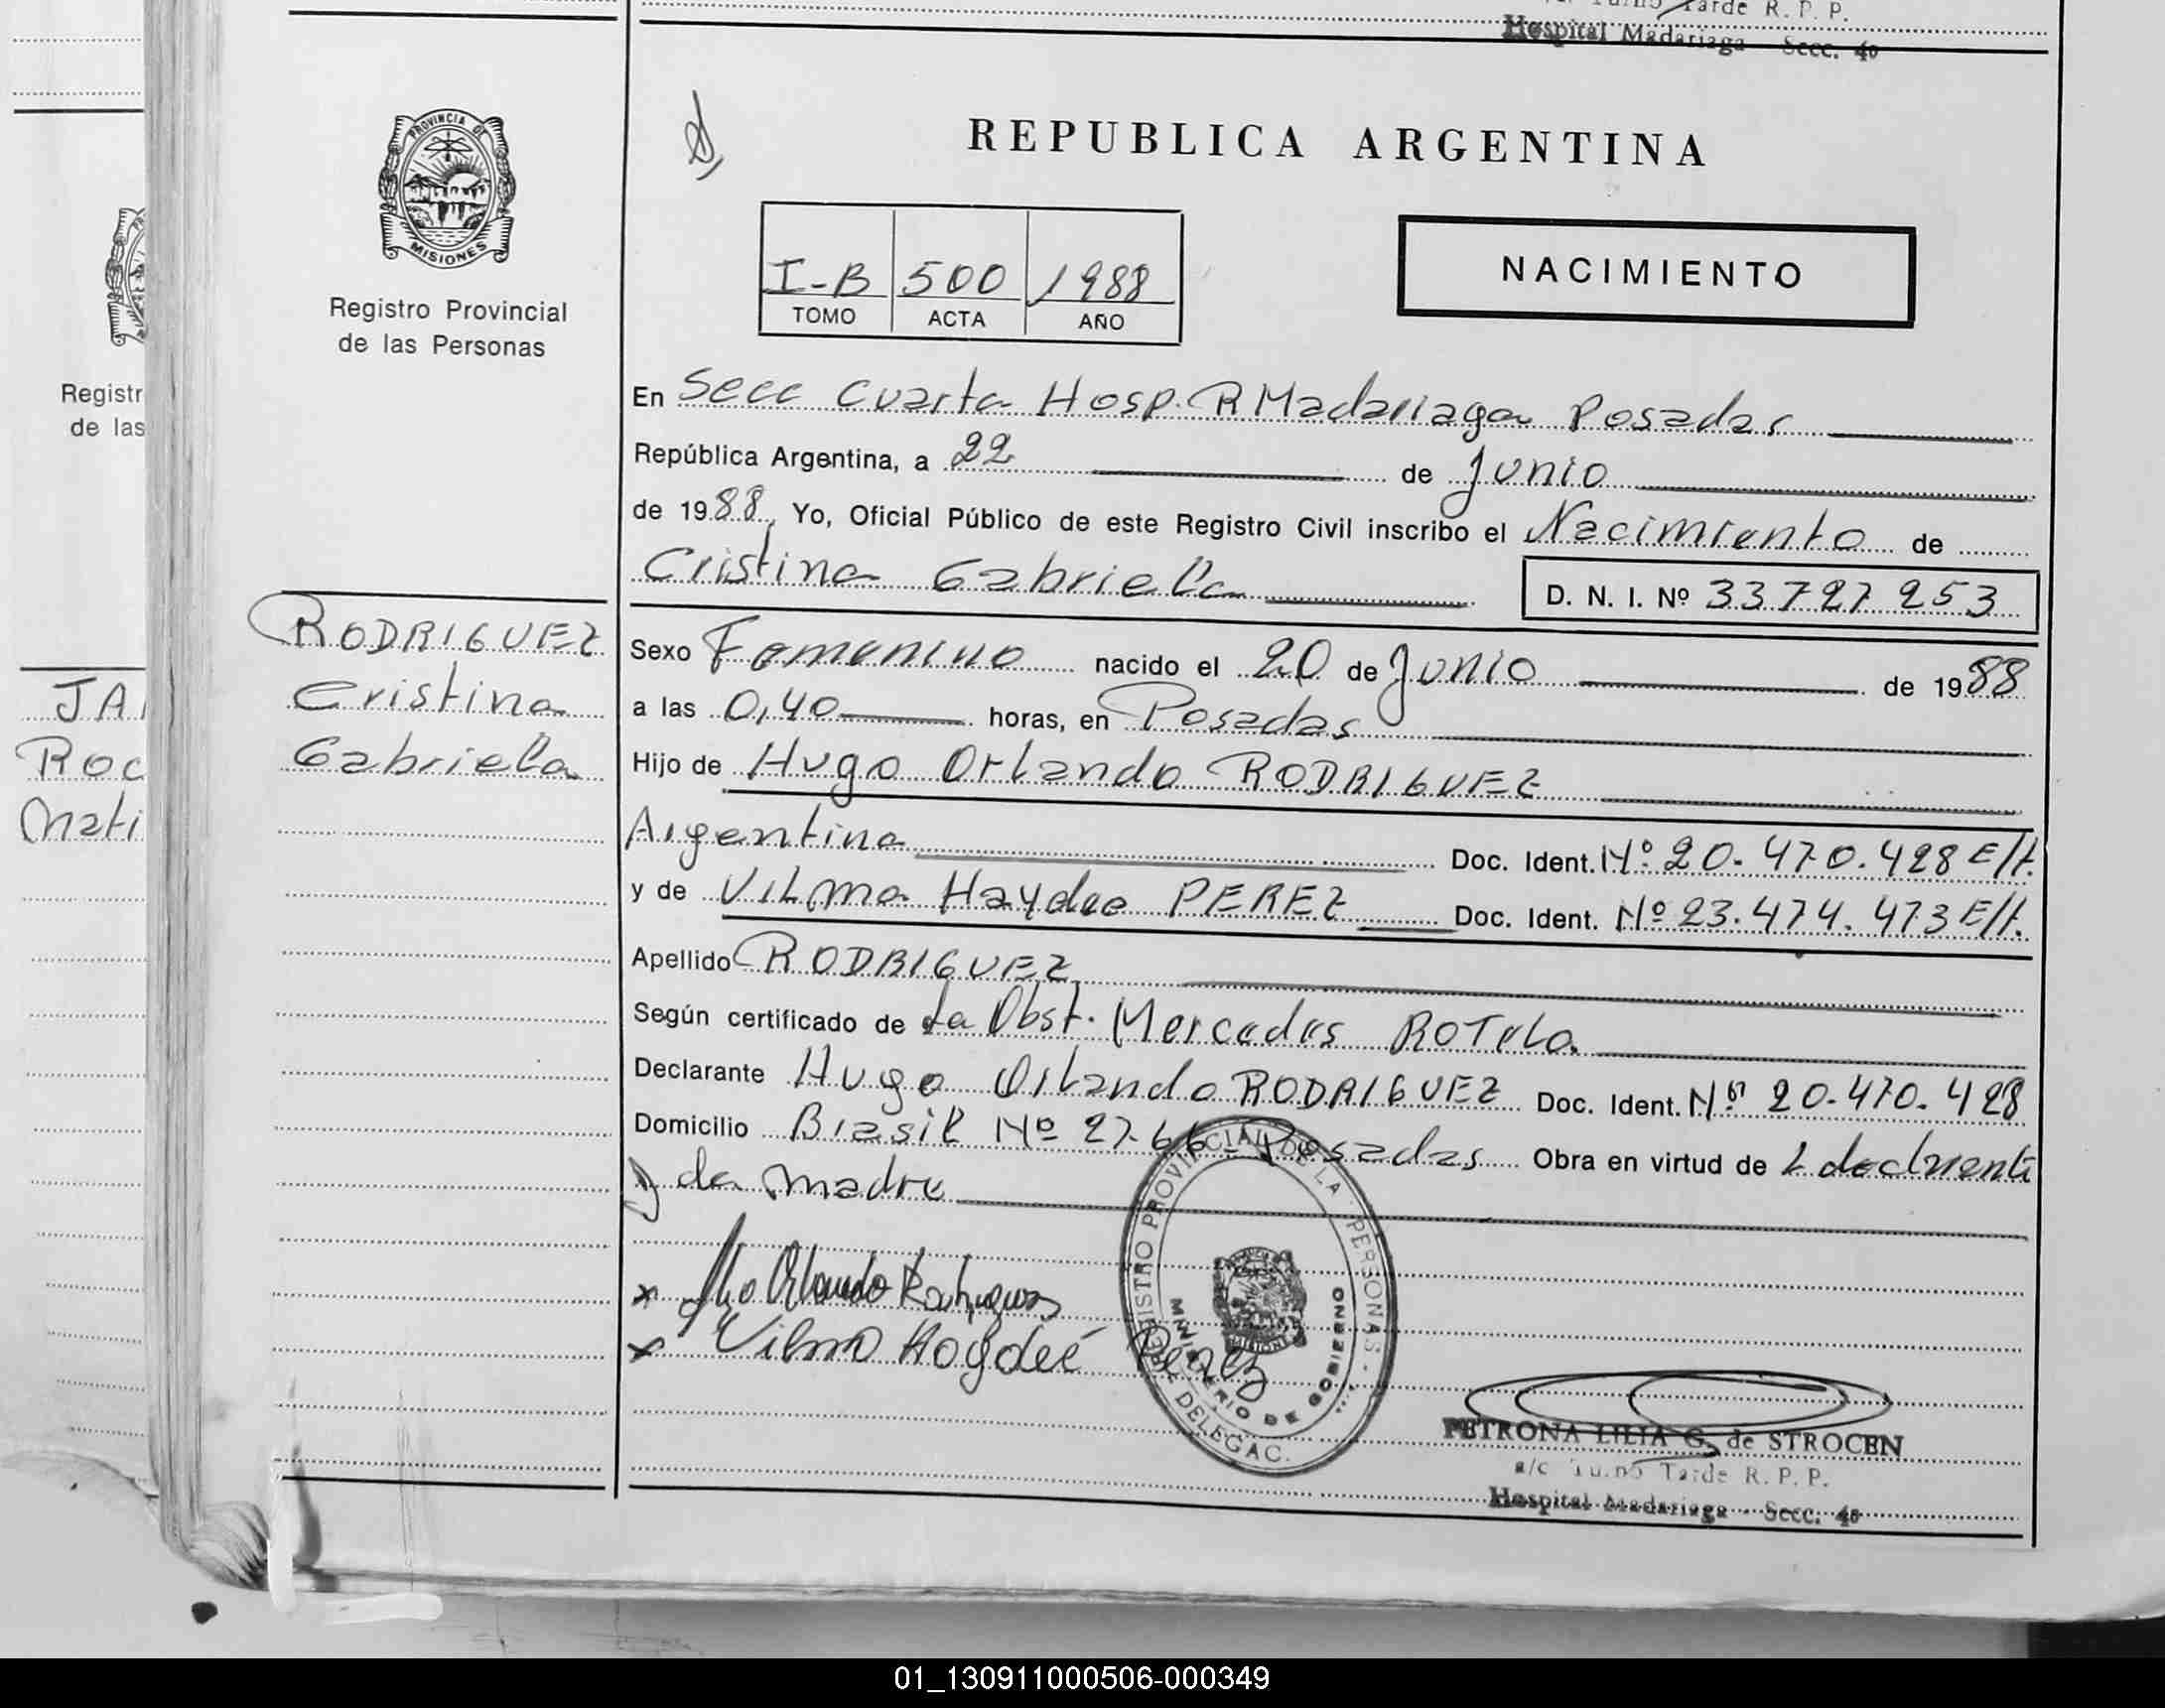 Turno Tarde R. P. P.
Hospital Madariaga Secc. 4º
PROVINCIA DE
MISIONES
Registro Provincial
de las Personas
REPUBLICA ARGENTINA
I-B 500 1988
TOMO ACTA AÑO
NACIMIENTO
En Secc Cuarta Hosp. R Madariaga Posadas
República Argentina, a 22 de Junio
de 1988, Yo, Oficial Público de este Registro Civil inscribo el Nacimiento de
Cristina Gabriela D. N. I. Nº 33727253
RODRIGUEZ
Cristina
Gabriela
Sexo Femenino nacido el 20 de Junio de 1988
a las 0,40 horas, en Posadas
Hijo de Hugo Orlando RODRIGUEZ
Argentina Doc. Ident. Nº 20.470.428 E/t.
y de Vilma Haydee PEREZ Doc. Ident. Nº 23.474.473 E/t.
Apellido RODRIGUEZ
Según certificado de la Obst. Mercedes ROTELA
Declarante Hugo Orlando RODRIGUEZ Doc. Ident. Nº 20.470.428
Domicilio Brasil Nº 2766 Posadas Obra en virtud de
la madre
Orlando Rodriguez
Vilma Haydeé Perez
REGISTRO PROVINCIAL DE LA PERSONAS
MINISTERIO DE GOBIERNO
DELEGAC.
PETRONA LILIA G. de STROCEN
a/c Turno Tarde R. P. P.
Hospital Madariaga - Secc. 4º
Registr
de las
JA
Roc
Mati
01_130911000506-000349